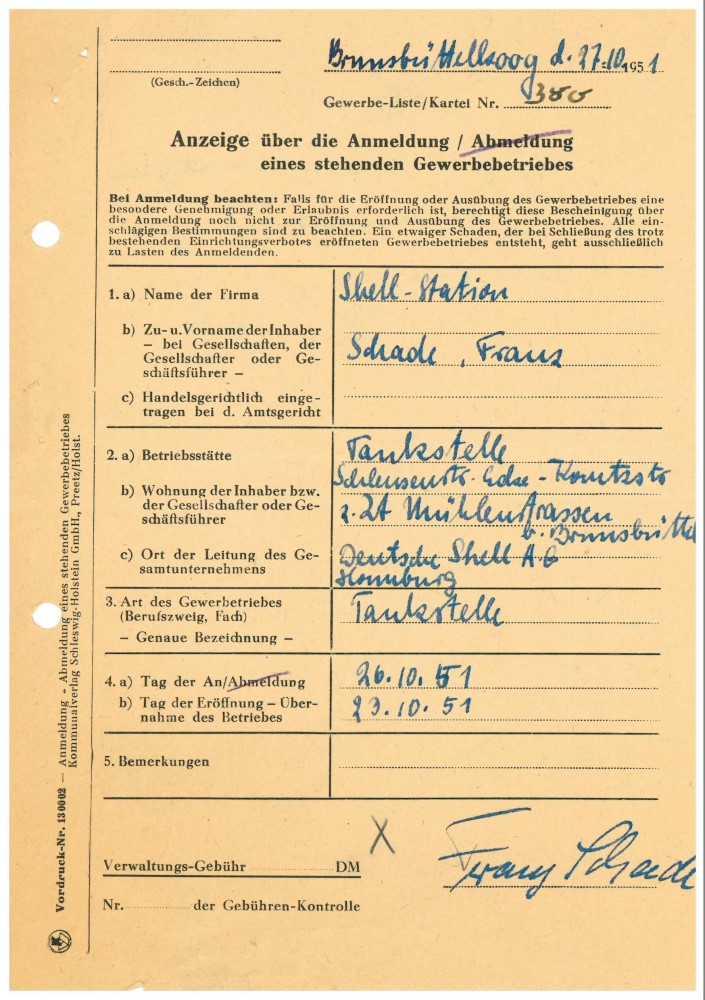 Brunsbüttelkoog d. 27.10. 1951
(Gesch.-Zeichen)
Gewerbe-Liste/Kartei Nr. 380
Anzeige über die Anmeldung / Abmeldung
eines stehenden Gewerbebetriebes
Bei Anmeldung beachten: Falls für die Eröffnung oder Ausübung des Gewerbebetriebes eine
besondere Genehmigung oder Erlaubnis erforderlich ist, berechtigt diese Bescheinigung über
die Anmeldung noch nicht zur Eröffnung und Ausübung des Gewerbebetriebes. Alle ein-
schlägigen Bestimmungen sind zu beachten. Ein etwaiger Schaden, der bei Schließung des trotz
bestehenden Einrichtungsverbotes eröffneten Gewerbebetriebes entsteht, geht ausschließlich
zu Lasten des Anmeldenden.
1. a) Name der Firma
Shell-Station
b) Zu- u. Vorname der Inhaber
– bei Gesellschaften, der
Gesellschafter oder Ge-
schäftsführer –
Schade, Franz
c) Handelsgerichtlich einge-
tragen bei d. Amtsgericht
2. a) Betriebsstätte
Tankstelle
Schleusenstr. Ecke - Koogstr
b) Wohnung der Inhaber bzw.
der Gesellschafter oder Ge-
schäftsführer
z. Zt Mühlenstrassen
b. Brunsbüttel
c) Ort der Leitung des Ge-
samtunternehmens
Deutsche Shell A G
Hamburg
3. Art des Gewerbetriebes
(Berufszweig, Fach)
– Genaue Bezeichnung –
Tankstelle
4. a) Tag der An/Abmeldung
26.10.51
b) Tag der Eröffnung – Über-
nahme des Betriebes
23.10.51
5. Bemerkungen
X
Verwaltungs-Gebühr DM
Franz Schade
Nr. der Gebühren-Kontrolle
Vordruck-Nr. 130002 — Anmeldung - Abmeldung eines stehenden Gewerbebetriebes
Kommunalverlag Schleswig-Holstein GmbH., Preetz/Holst.